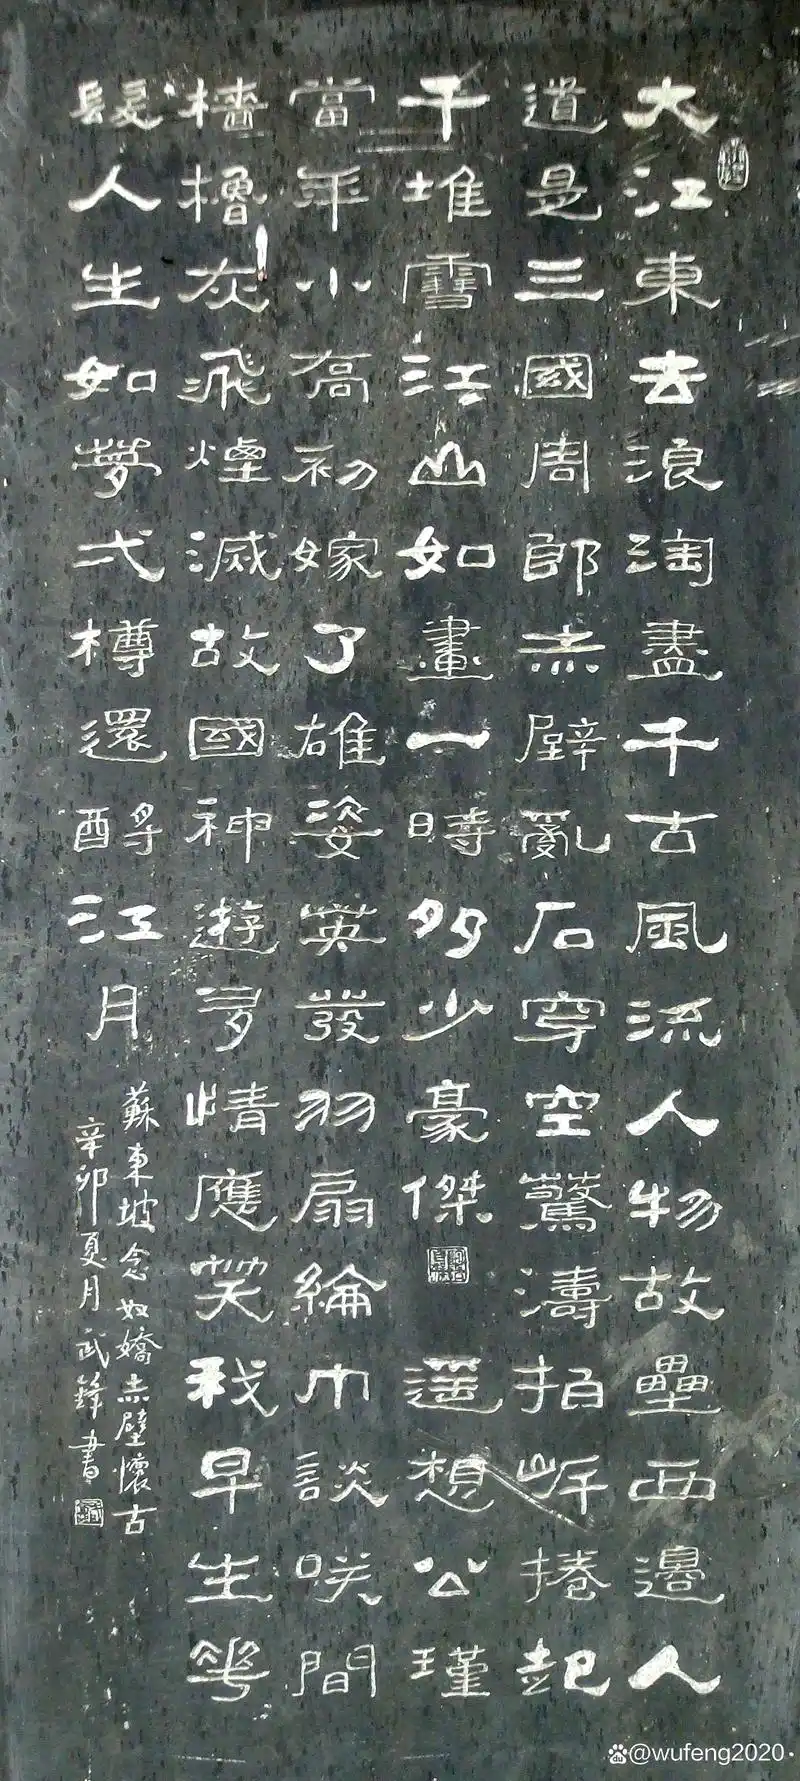 大江東去浪淘盡千古風流人物故壘西邊人
道是三國周郎赤壁亂石穿空驚濤拍岸捲起
千堆雪江山如畫一時多少豪傑遥想公瑾
當年小喬初嫁了雄姿英發羽扇綸巾談咲間
檣櫓灰飛煙滅故國神遊多情應笑我早生華
髮人生如夢弌樽還酹江月
蘇東坡念奴嬌赤壁懷古
辛卯夏月武鋒書
@wufeng2020